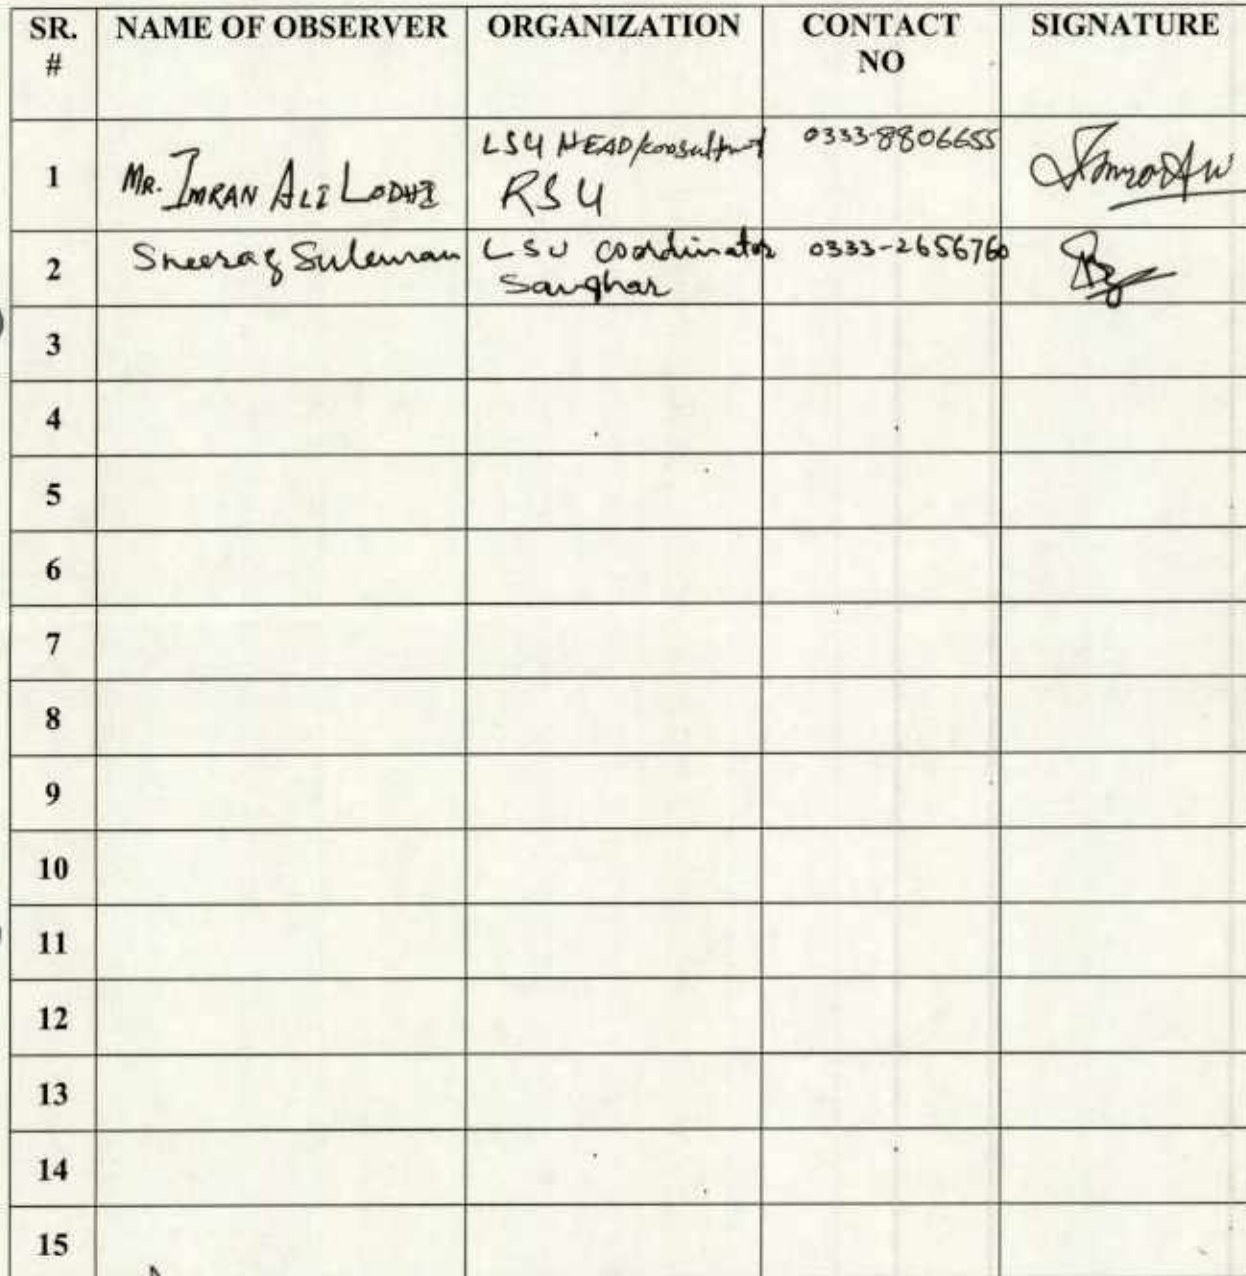 SR. # NAME OF OBSERVER ORGANIZATION CONTACT NO SIGNATURE
1 MR. IMRAN ALI LODHI LSU HEAD/consultant RSU 0333-8806655
2 Suleman LSU coordinator Sanghar 0333-2656760
3
4
5
6
7
8
9
10
11
12
13
14
15